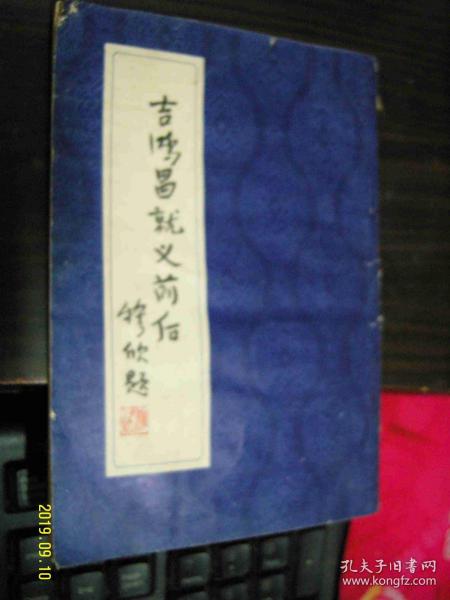 吉鸿昌就义前后
穆欣题
2019.09.10
孔夫子旧书网
www.kongfz.com